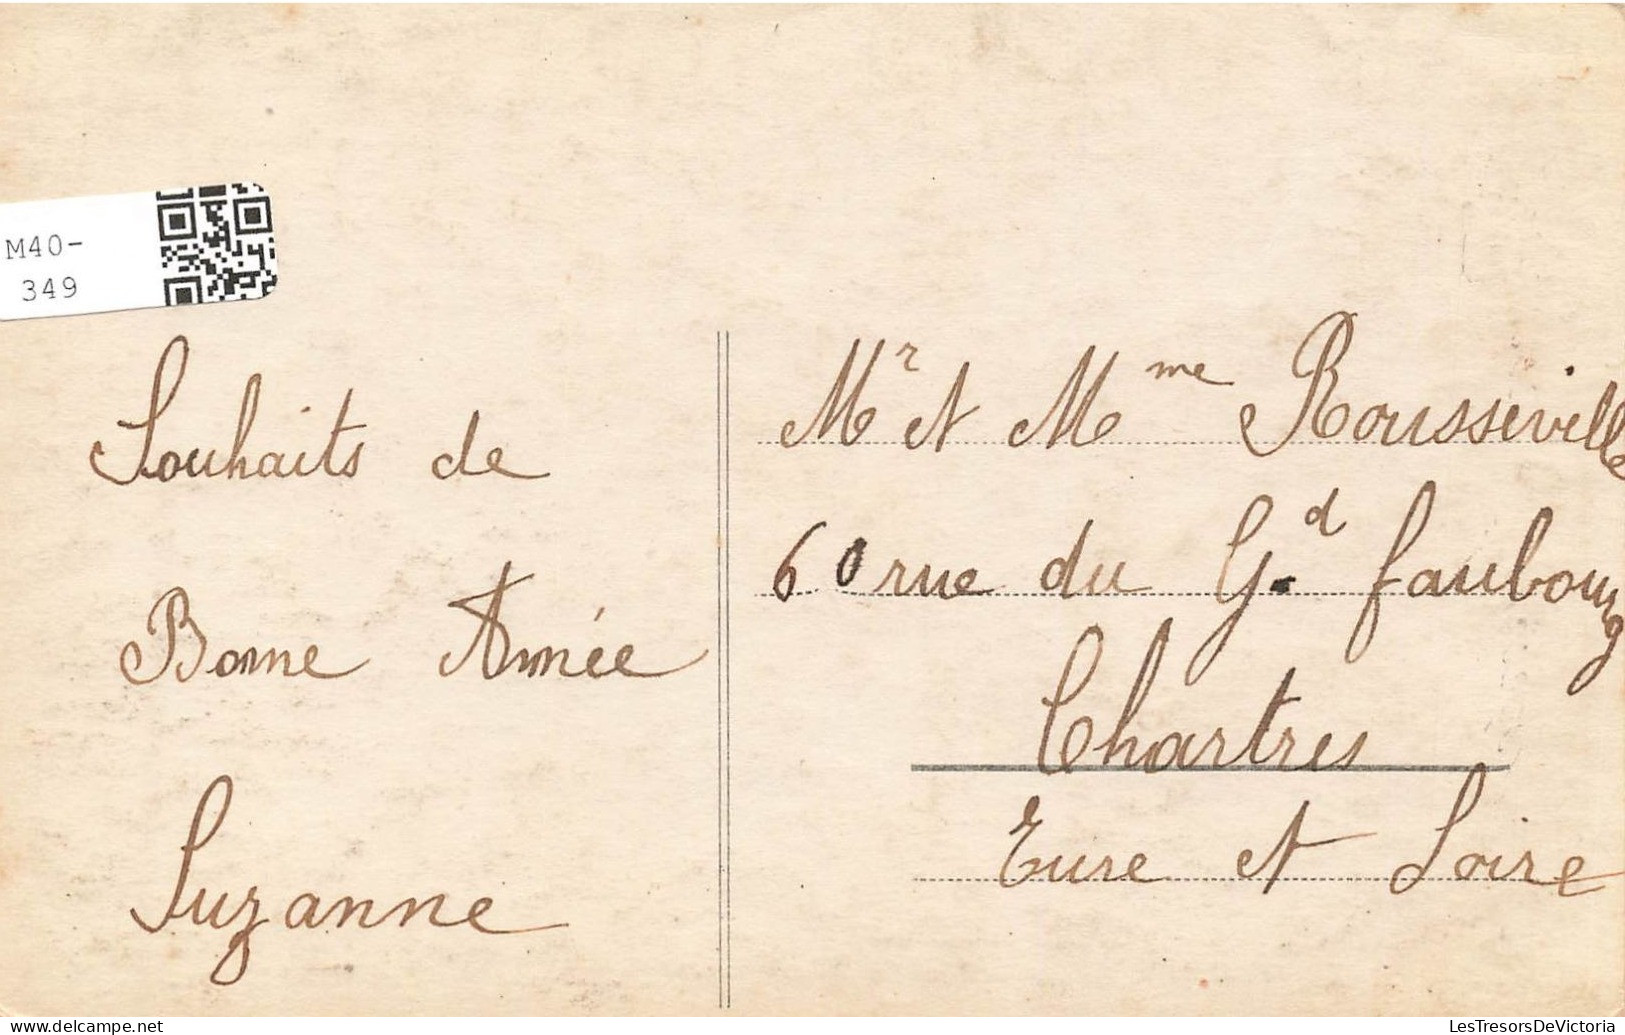 M40-
349
Souhaits de
Bonne Année
Suzanne
Mr et Mme Rousseville
60 rue du Gd. faubourg
Chartres
Eure et Loire
www.delcampe.net
LesTresorsDeVictoria